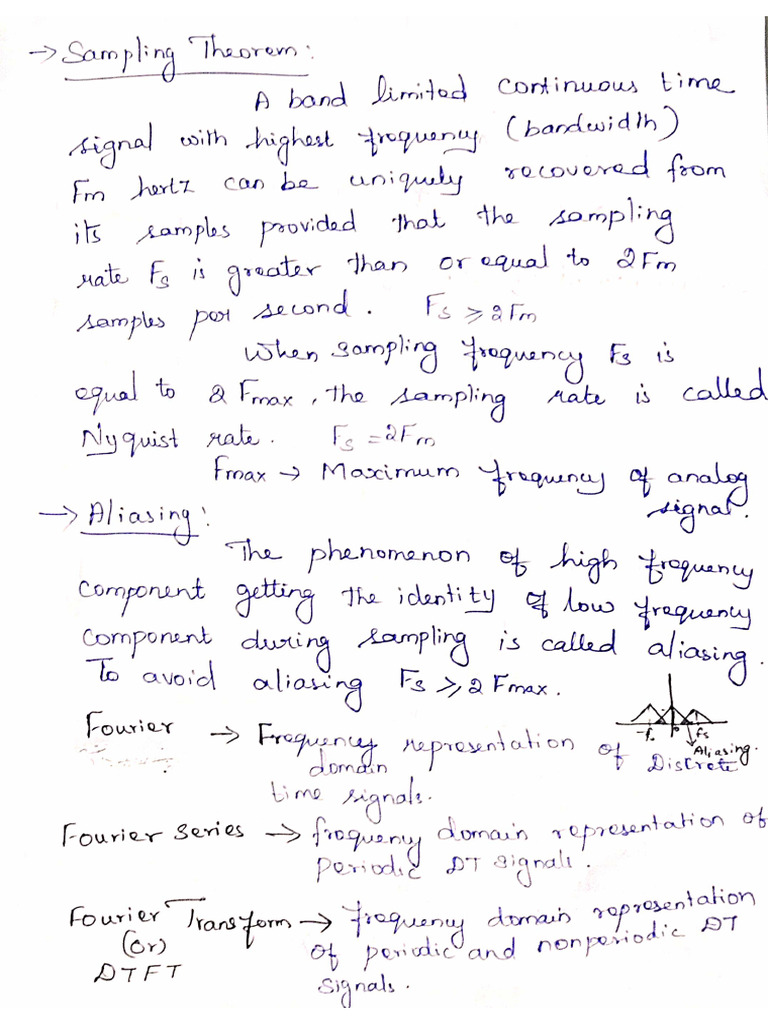 → Sampling Theorem:
A band limited continuous time
signal with highest frequency (bandwidth)
Fm hertz can be uniquely recovered from
its samples provided that the sampling
rate Fs is greater than or equal to 2Fm
samples per second. Fs ≥ 2Fm
When sampling frequency Fs is
equal to 2 Fmax, the sampling rate is called
Nyquist rate. Fs = 2Fm
Fmax → Maximum frequency of analog
signal.
→ Aliasing:
The phenomenon of high frequency
component getting the identity of low frequency
component during sampling is called aliasing.
To avoid aliasing Fs ≥ 2 Fmax.
fs
Aliasing.
Fourier → Frequency representation of Discrete
domain
time signals.
Fourier series → frequency domain representation of
periodic DT signals.
Fourier Transform → frequency domain representation
(or) of periodic and nonperiodic DT
DTFT
signals.